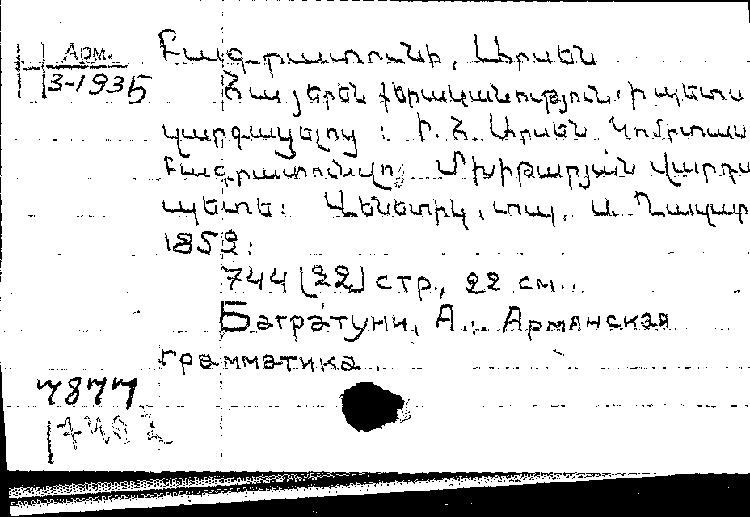 Арм.
3-1935
Բագրատունի, Արսեն
Հայերէն քերականություն ի պետս
զարգացելոց: Ի Հ. Արսեն Կոմիտաս
Բագրատունվոյ Մխիթարյան վարդա
պետե: Վենետիկ, տպ. ս. Ղազար
1852:
744 [22] стр, 22 см.
Багратуни, А.: Армянская
грамматика
7877